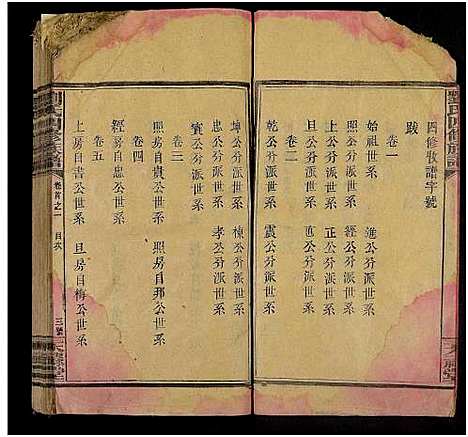 劉氏四修族譜
四修散譜字號
跋
卷一
始祖世系 進公分派世系
照公分派世系 經公分派世系
上公分派世系 正公分派世系
旦公分派世系
卷二
乾公分世系 震公分世系
坤公分世系 棟公分派世系
賓公分派世系 孝公分派世系
卷三
熙房自貴公世系 熙房自邦公世系
卷四
經房自忠公世系
卷五
上房自書公世系 旦房自梅公世系
劉氏四修族譜
卷首之一
目次
三